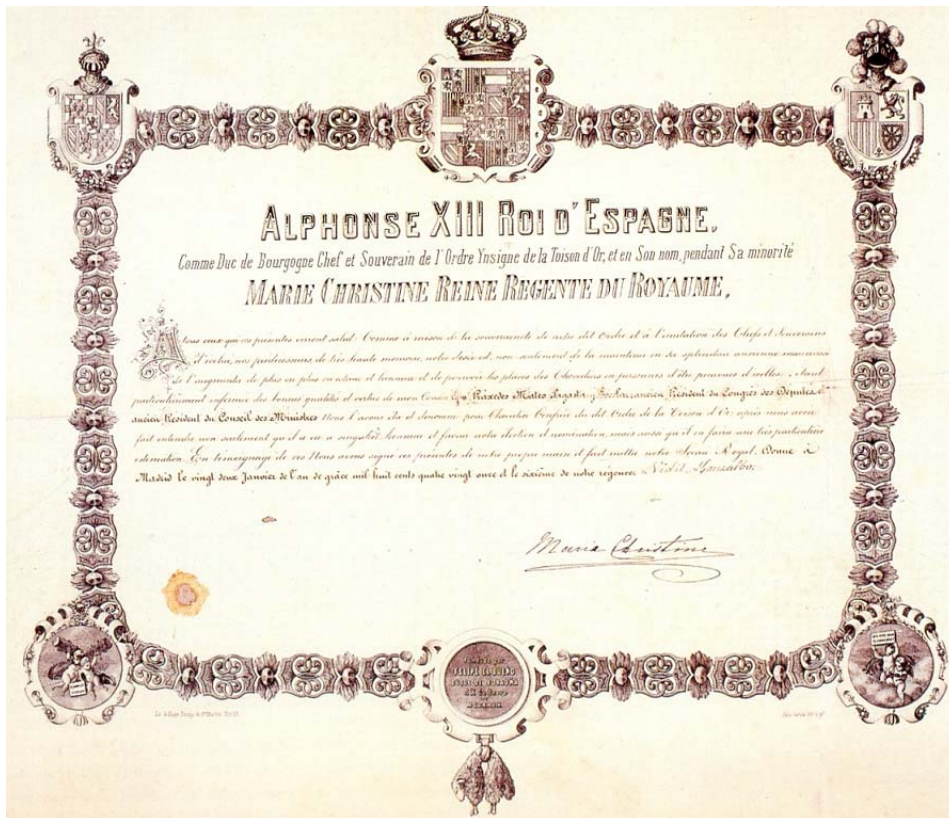 ALPHONSE XIII ROI D'ESPAGNE.
Comme Duc de Bourgogne Chef et Souverain de l'Ordre Ynsigne de la Toison d'Or, et en Son nom, pendant Sa minorité
MARIE CHRISTINE REINE REGENTE DU ROYAUME,
A tous ceux qui ces presentes verront salut. Comme à raison de la souveraineté de cette dit Ordre et à l'imitation des Chefs et Souverains
d'icelui, nos predecesseurs de très haute memoire, notre desir est, non seulement de la maintenir en sa splendeur ancienne mais aussi
de l'augmenter de plus en plus en estime et honneur et de pourvoir les places des Chevaliers en personnes d'être pourvues d'icelles. Etant
particulièrement informée des bonnes qualités et vertus de mon Cousin Práxedes Mateo Sagasta y Escolar, ancien Président du Congrès des Députés &
ancien Président du Conseil des Ministres Nous l'avons élu et denommé pour Chevalier Confrère du dit Ordre de la Toison d'Or, après nous avoir
fait entendre non seulement qu'il a en singulier honneur et faveur notre élection et nomination, mais aussi qu'il en faira une très particulière
estimation. En témoignage de ces Nous avons signé ces presentes de notre propre main et fait mettre notre Sceau Royal. Donné à
Madrid le vingt deux Janvier de l'an de grâce mil huit cents quatre vingt onze et le sixième de notre régence.
Maria Christina
Fundada por
FELIPE EL BUENO
DUQUE DE BORGOÑA